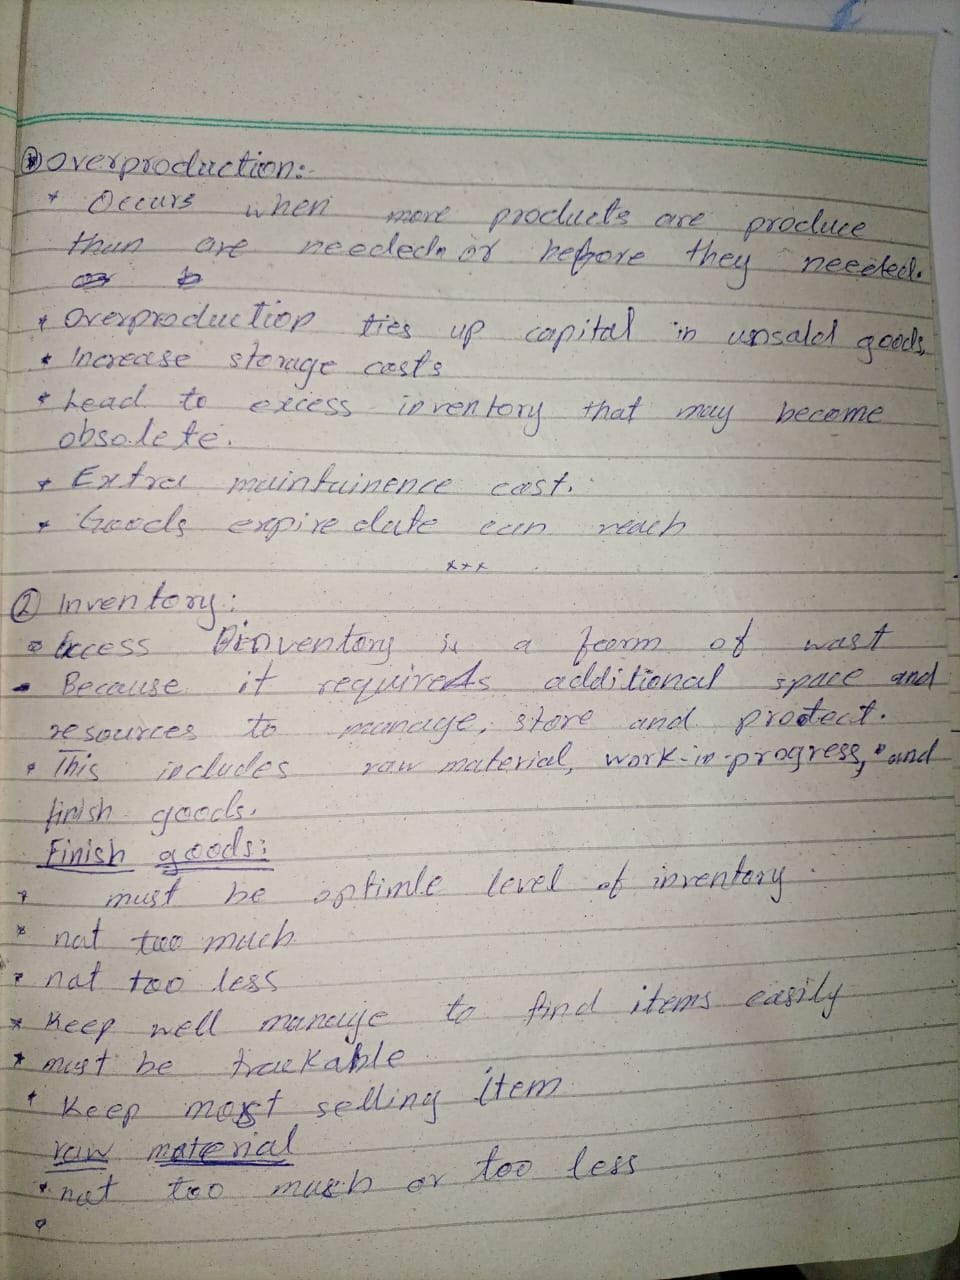 ① Overproduction:-
* Occurs when more products are produce
than are needed or before they needed.
* Overproduction ties up capital in unsold goods,
* Increase storage costs
* Lead to excess inventory that may become
obsolete.
* Extra maintainence cost.
* Goods expire date can reach
***
② Inventory:
* Excess Inventory is a form of wast
- Because it requires additional space and
resources to manage, store and protect.
* This includes raw material, work-in-progress, and
finish goods.
Finish goods:
* must be optimle level of inventory.
* not too much
* not too less
* Keep well manage to find items easily
* must be trackable
* Keep most selling item
raw material
* not too much or too less